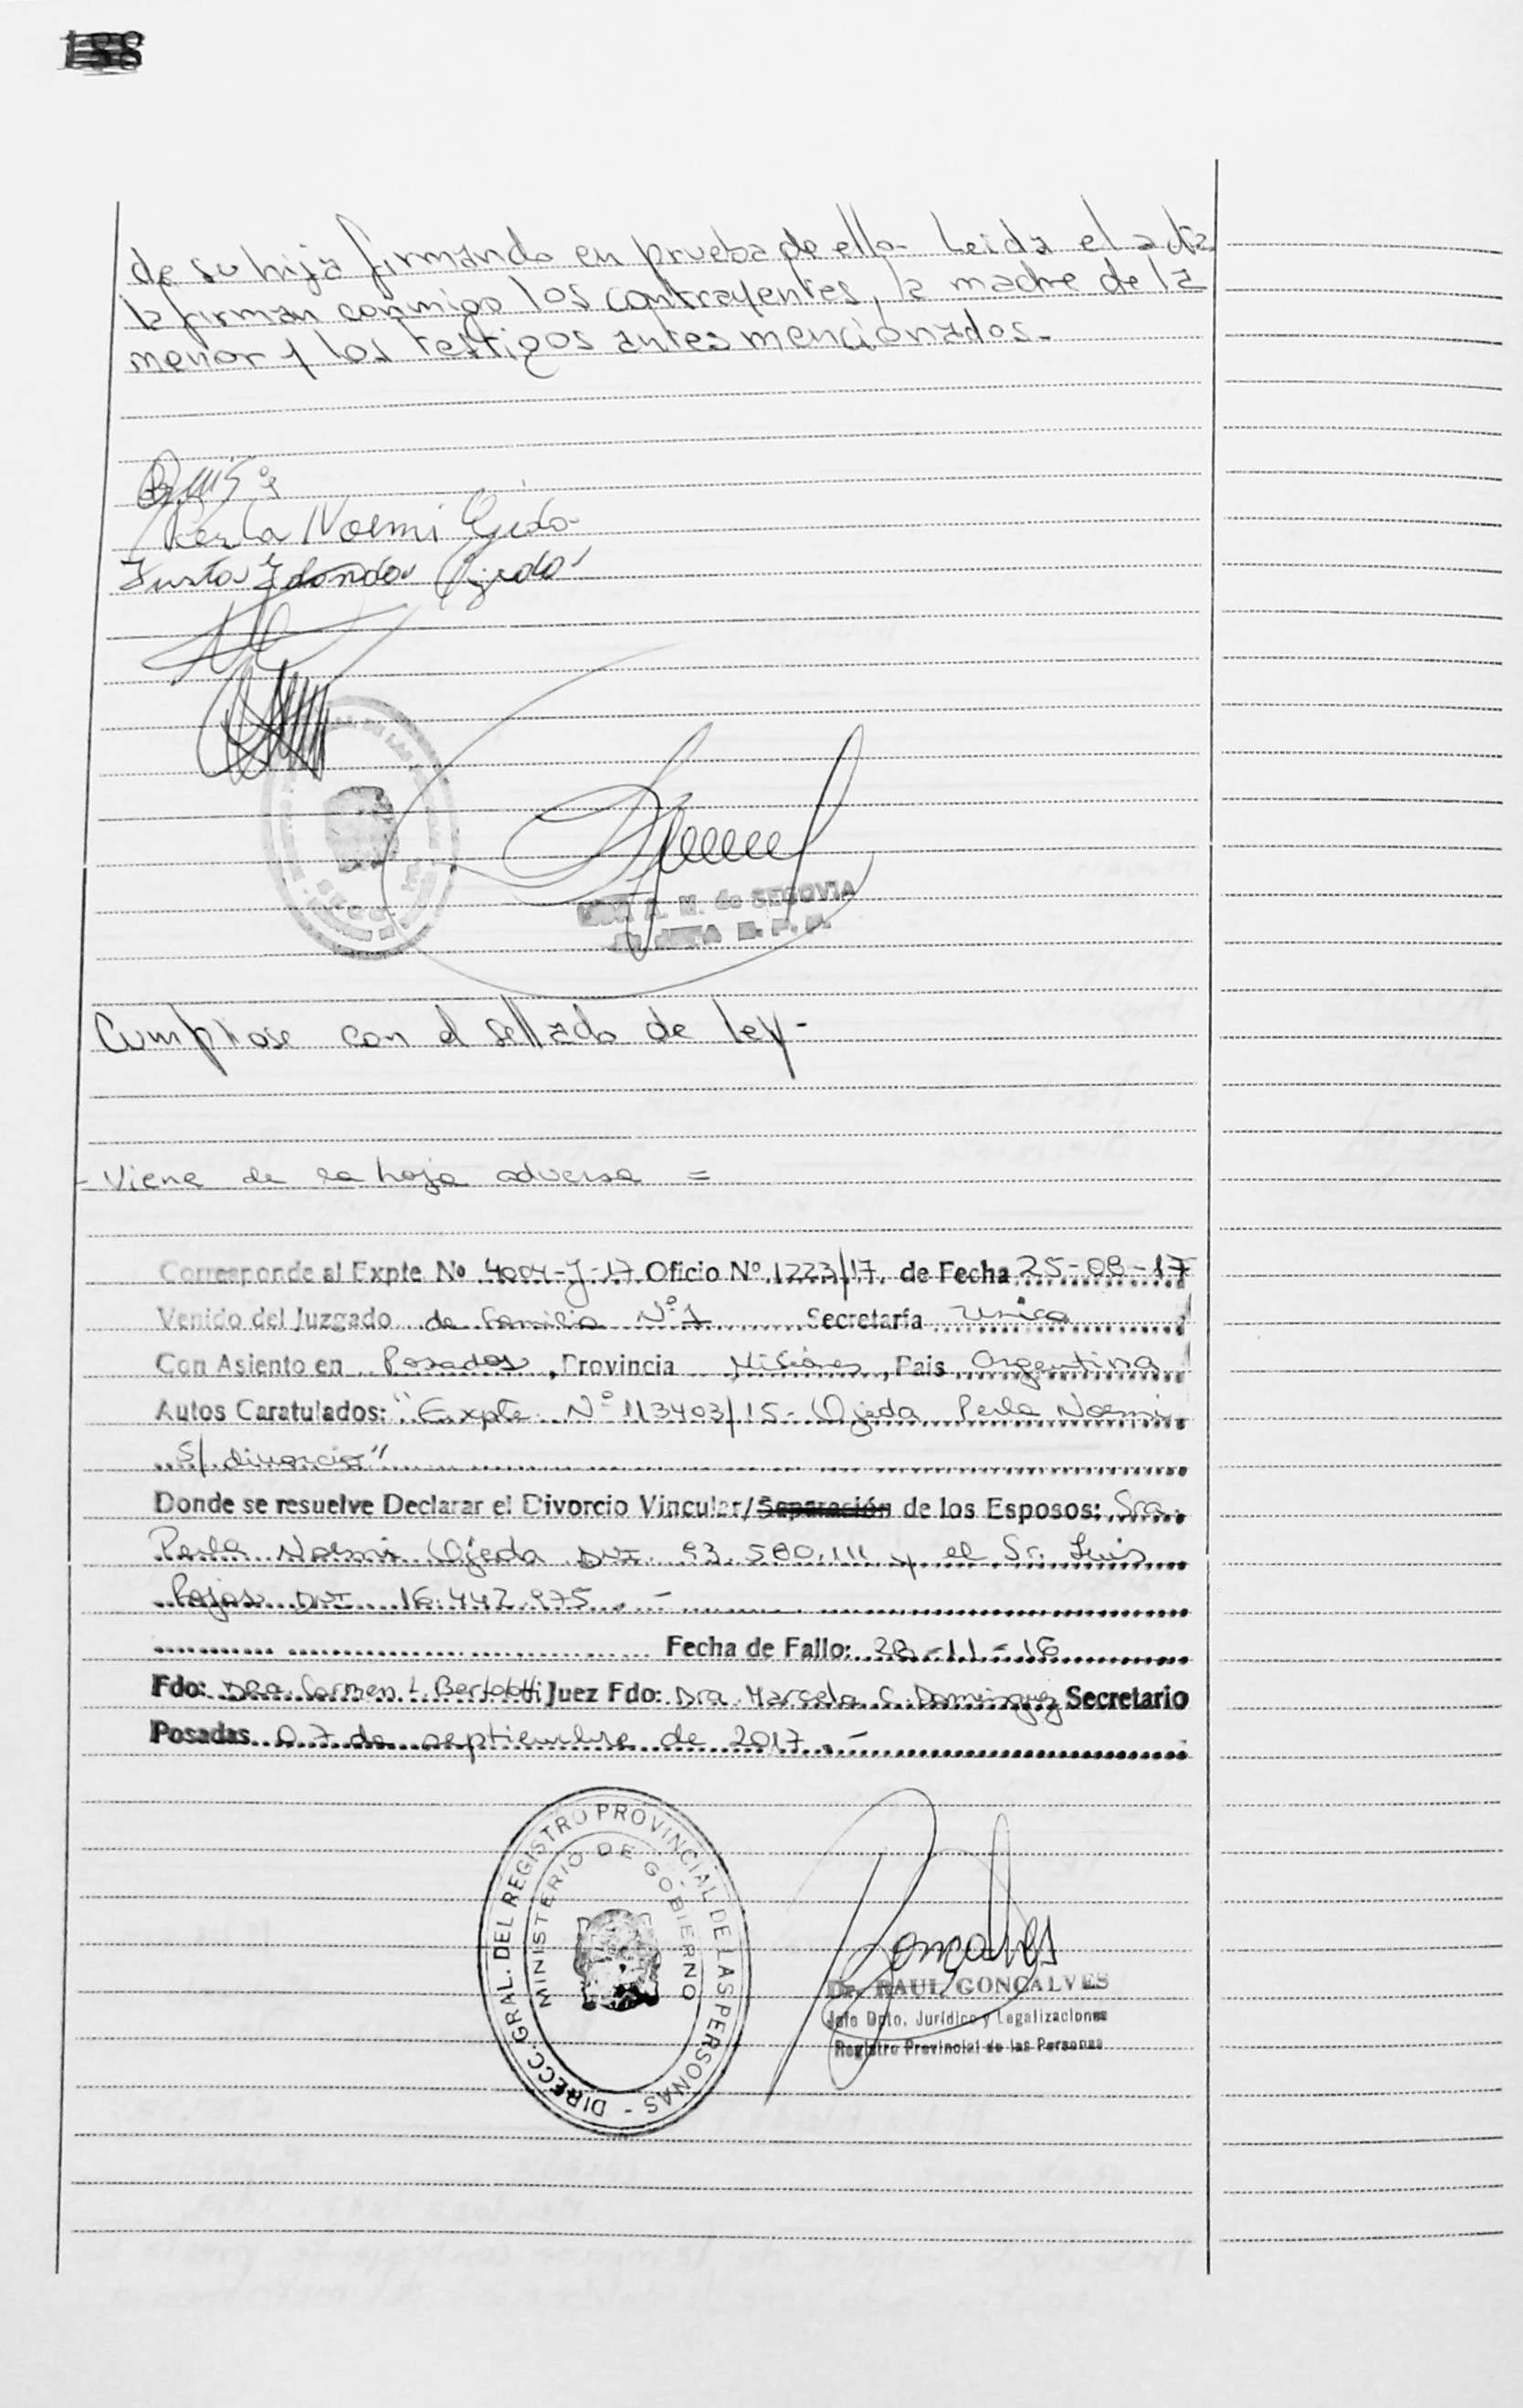 188
de su hija firmando en prueba de ello- Leida el acta
la firman conmigo los contrayentes, la madre de la
menor y los testigos antes mencionados.-
Perla Noemi Ojeda
Justa Ojeda
A. M. de SEGOVIA
Cumpliose con el sellado de ley-
- Viene de la hoja adversa =
Corresponde al Expte No 4004-J-17 Oficio Nº 1223/17. de Fecha 25-08-17
Venido del Juzgado de Familia Nº 1 Secretaría Unica
Con Asiento en Posadas, Provincia Misiones, Pais Argentina
Autos Caratulados: "Expte. Nº 113403/15- Ojeda Perla Noemi
S/ divorcio"
Donde se resuelve Declarar el Divorcio Vincular/Separación de los Esposos: Sra.
Perla Noemi Ojeda DNI 93.580.111 y el Sr. Luis
Rojas DNI 16.442.975.-
Fecha de Fallo: 28-11-16
Fdo: Dra. Carmen L. Bertolotti Juez Fdo: Dra. Marcela C. Dominguez Secretario
Posadas 07 de septiembre de 2017.-
DIRECC. GRAL. DEL REGISTRO PROVINCIAL DE LAS PERSONAS -
MINISTERIO DE GOBIERNO
Goncalves
Dr. RAUL GONCALVES
Jefe Dpto. Jurídico y Legalizaciones
Registro Provincial de las Personas